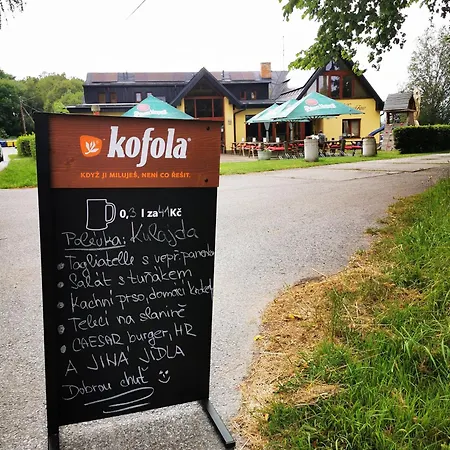 kofola
KDYŽ JI MILUJEŠ, NENÍ CO ŘEŠIT.
0,3 l za 41 Kč
Polévka: Kulajda
Tagliatelle s vepř. panenkou
Salát s tuňákem
Kachní prso, domácí
Telecí na slanině
CAESAR burger, HR
A JINÁ JÍDLA
Dobrou chuť